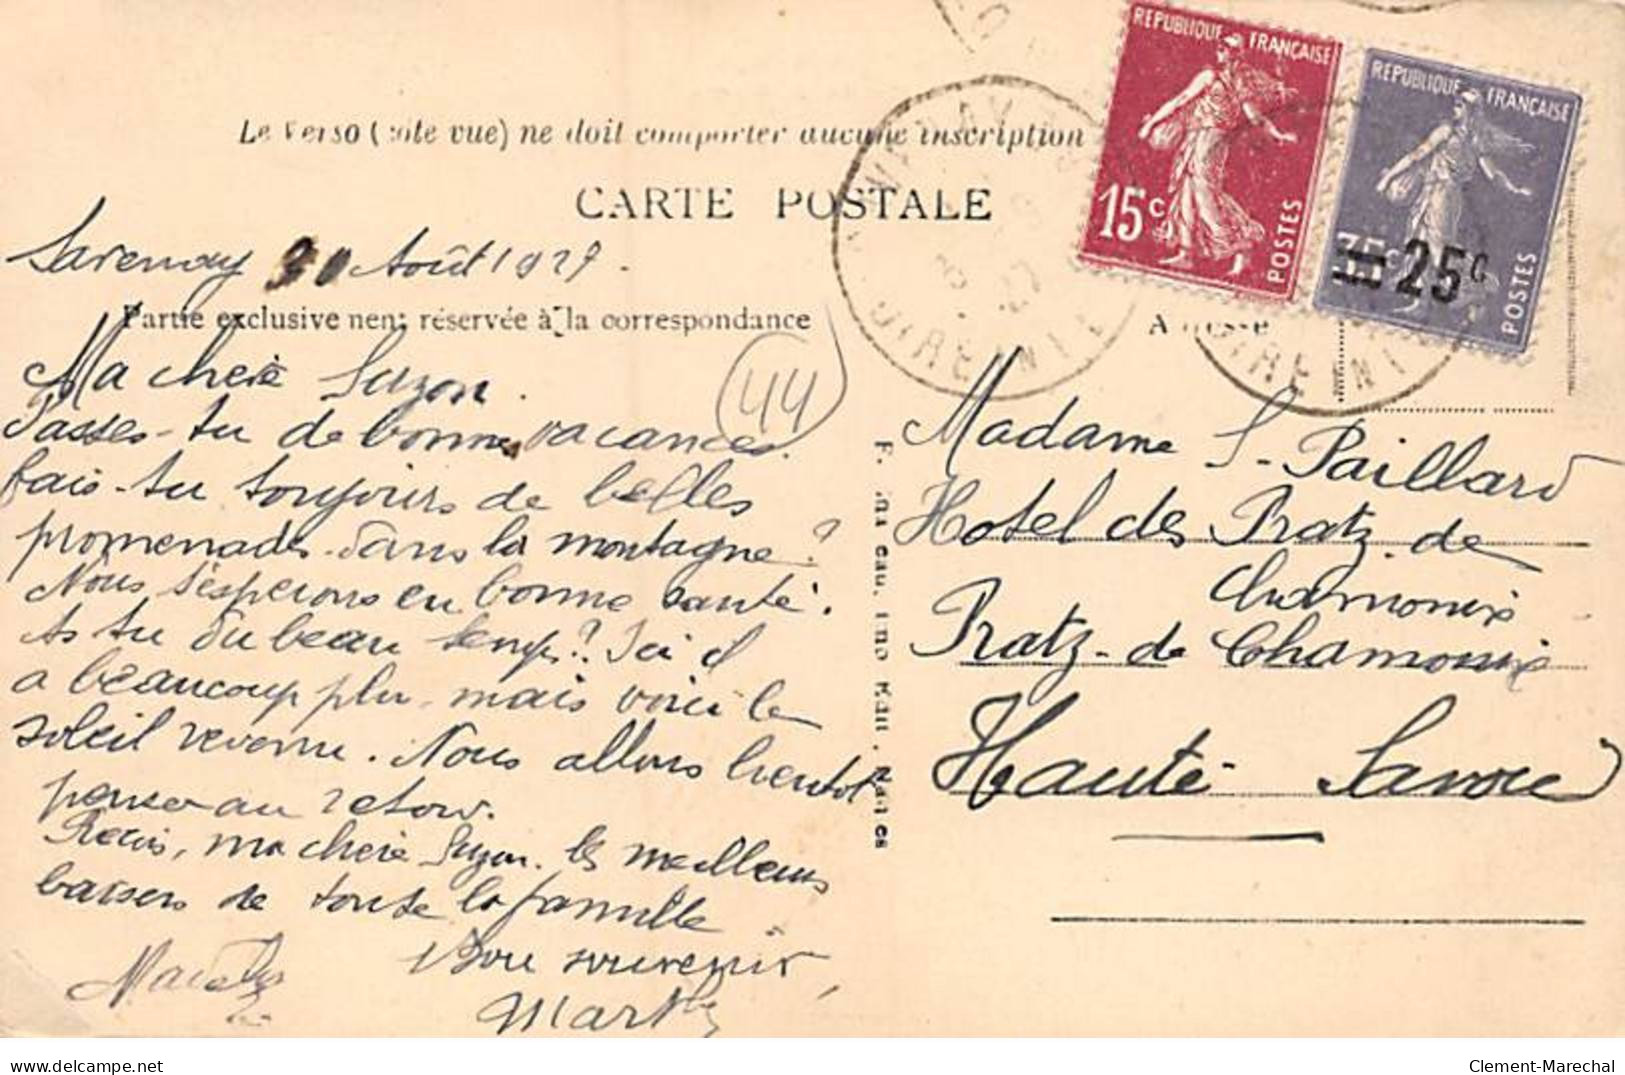 RÉPUBLIQUE FRANÇAISE
15c
POSTES
RÉPUBLIQUE FRANÇAISE
35c 25c
POSTES
Le Verso (côté vue) ne doit comporter aucune inscription
CARTE POSTALE
Savenay 30 Août 1927.
Partie exclusivement réservée à la correspondance
Adresse
44
Ma chère Suzon.
Passes-tu de bonnes vacances.
fais-tu toujours de belles
promenades dans la montagne?
Nous t'espérons en bonne santé.
As tu du beau temps? Ici il
a beaucoup plu, mais voici le
soleil revenu. Nous allons bientôt
penser au retour.
Reçois, ma chère Suzon. les meilleurs
baisers de toute la famille
Bon souvenir,
Marthe
Madame S. Paillard
Hotel des Pratz de
Chamonix
Pratz-de Chamonix
Haute Savoie
SAVENAY
LOIRE INF
27
delcampe.net
Clement-Marechal